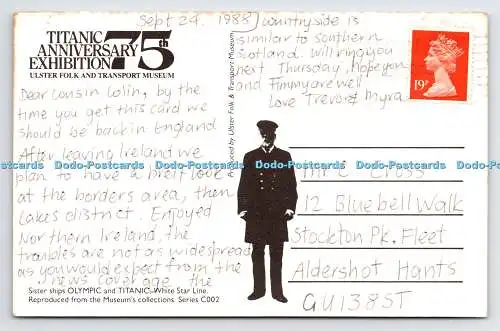 TITANIC
ANNIVERSARY 75th
EXHIBITION
ULSTER FOLK AND TRANSPORT MUSEUM
Sept 24. 1988
Dear Cousin Colin, by the
time you get this card we
should be back in England
After leaving Ireland we
plan to have a brief look
at the borders area, then
Lakes district. Enjoyed
Northern Ireland, the
troubles are not as widespread
as you would expect from the
news coverage the
Countryside is
similar to southern
Scotland. Will ring you
next Thursday, hope you
and Timmy are well
Love Trevor & Myra
19
Produced by Ulster Folk & Transport Museum
Mr C Cross
12 Bluebell Walk
Stockton Pk. Fleet
Aldershot Hants
GU13 8ST
Sister ships OLYMPIC and TITANIC. White Star Line.
Reproduced from the Museum's collections. Series C002
Dodo-Postcards Dodo-Postcards Dodo-Postcards Dodo-Postcards Dodo-Postcards Dodo-Postcards